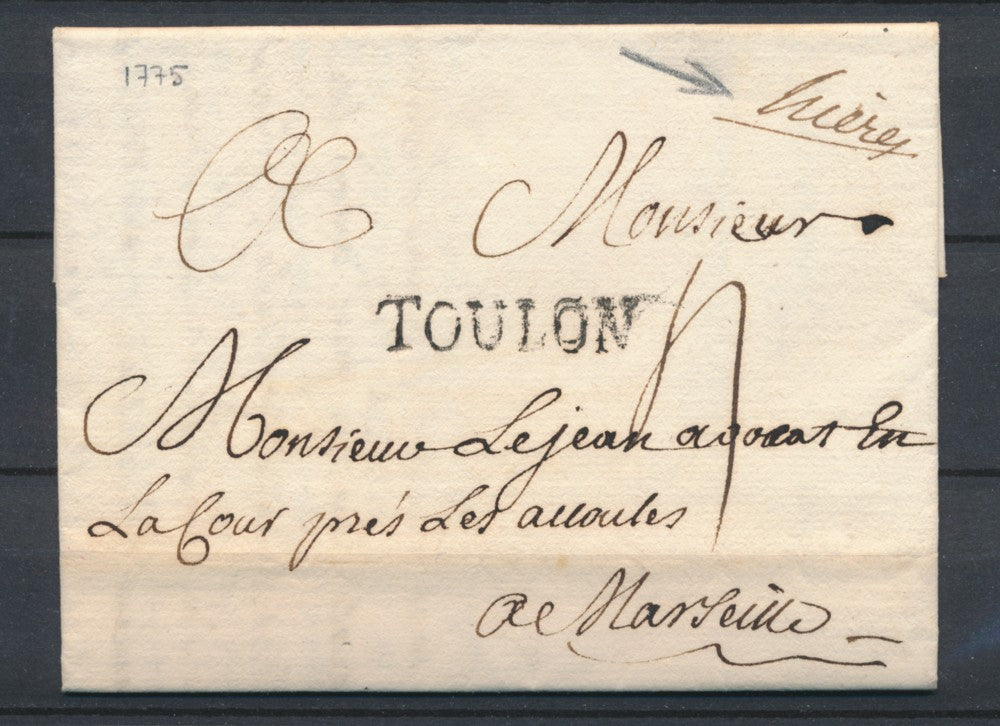 1775
hieres
A Monsieur
TOULON
4
Monsieur Lejean avocat En
La Cour prés Les accoules
a Marseille